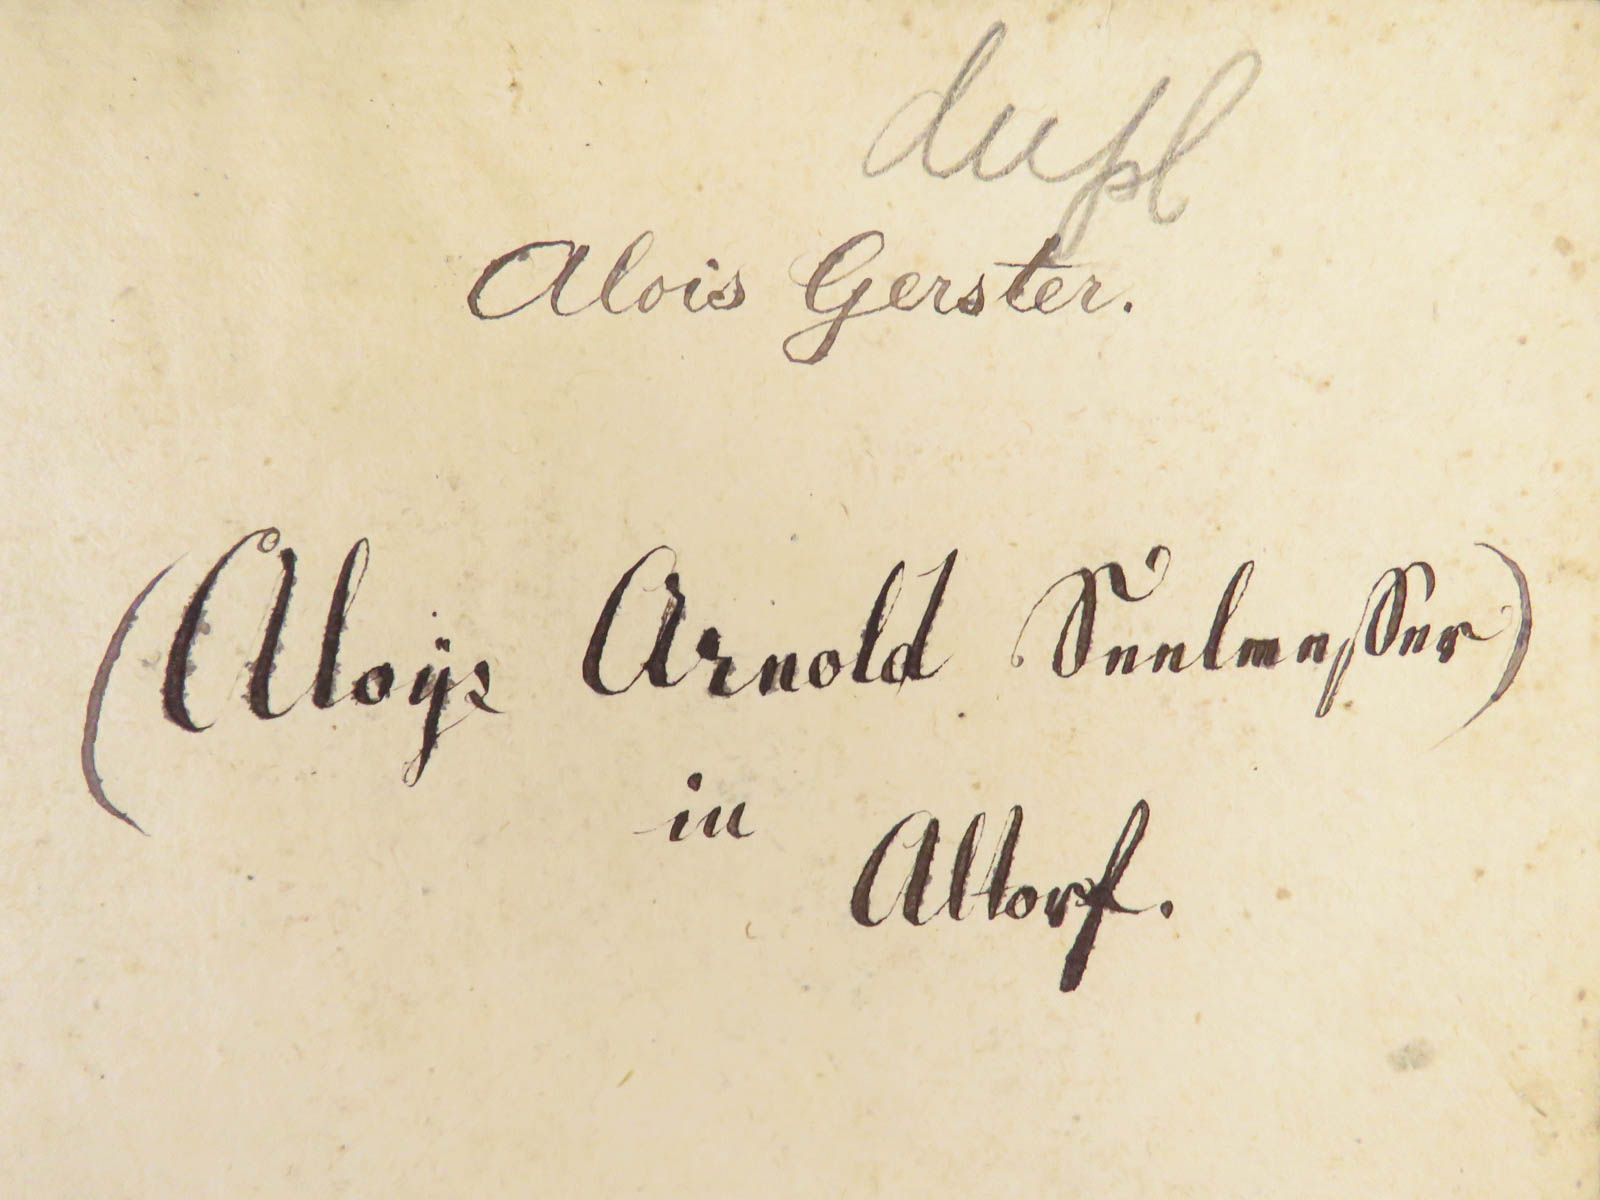 dupl
Alois Gerster.
(Aloÿs Arnold Seelmesser)
in
Altorf.